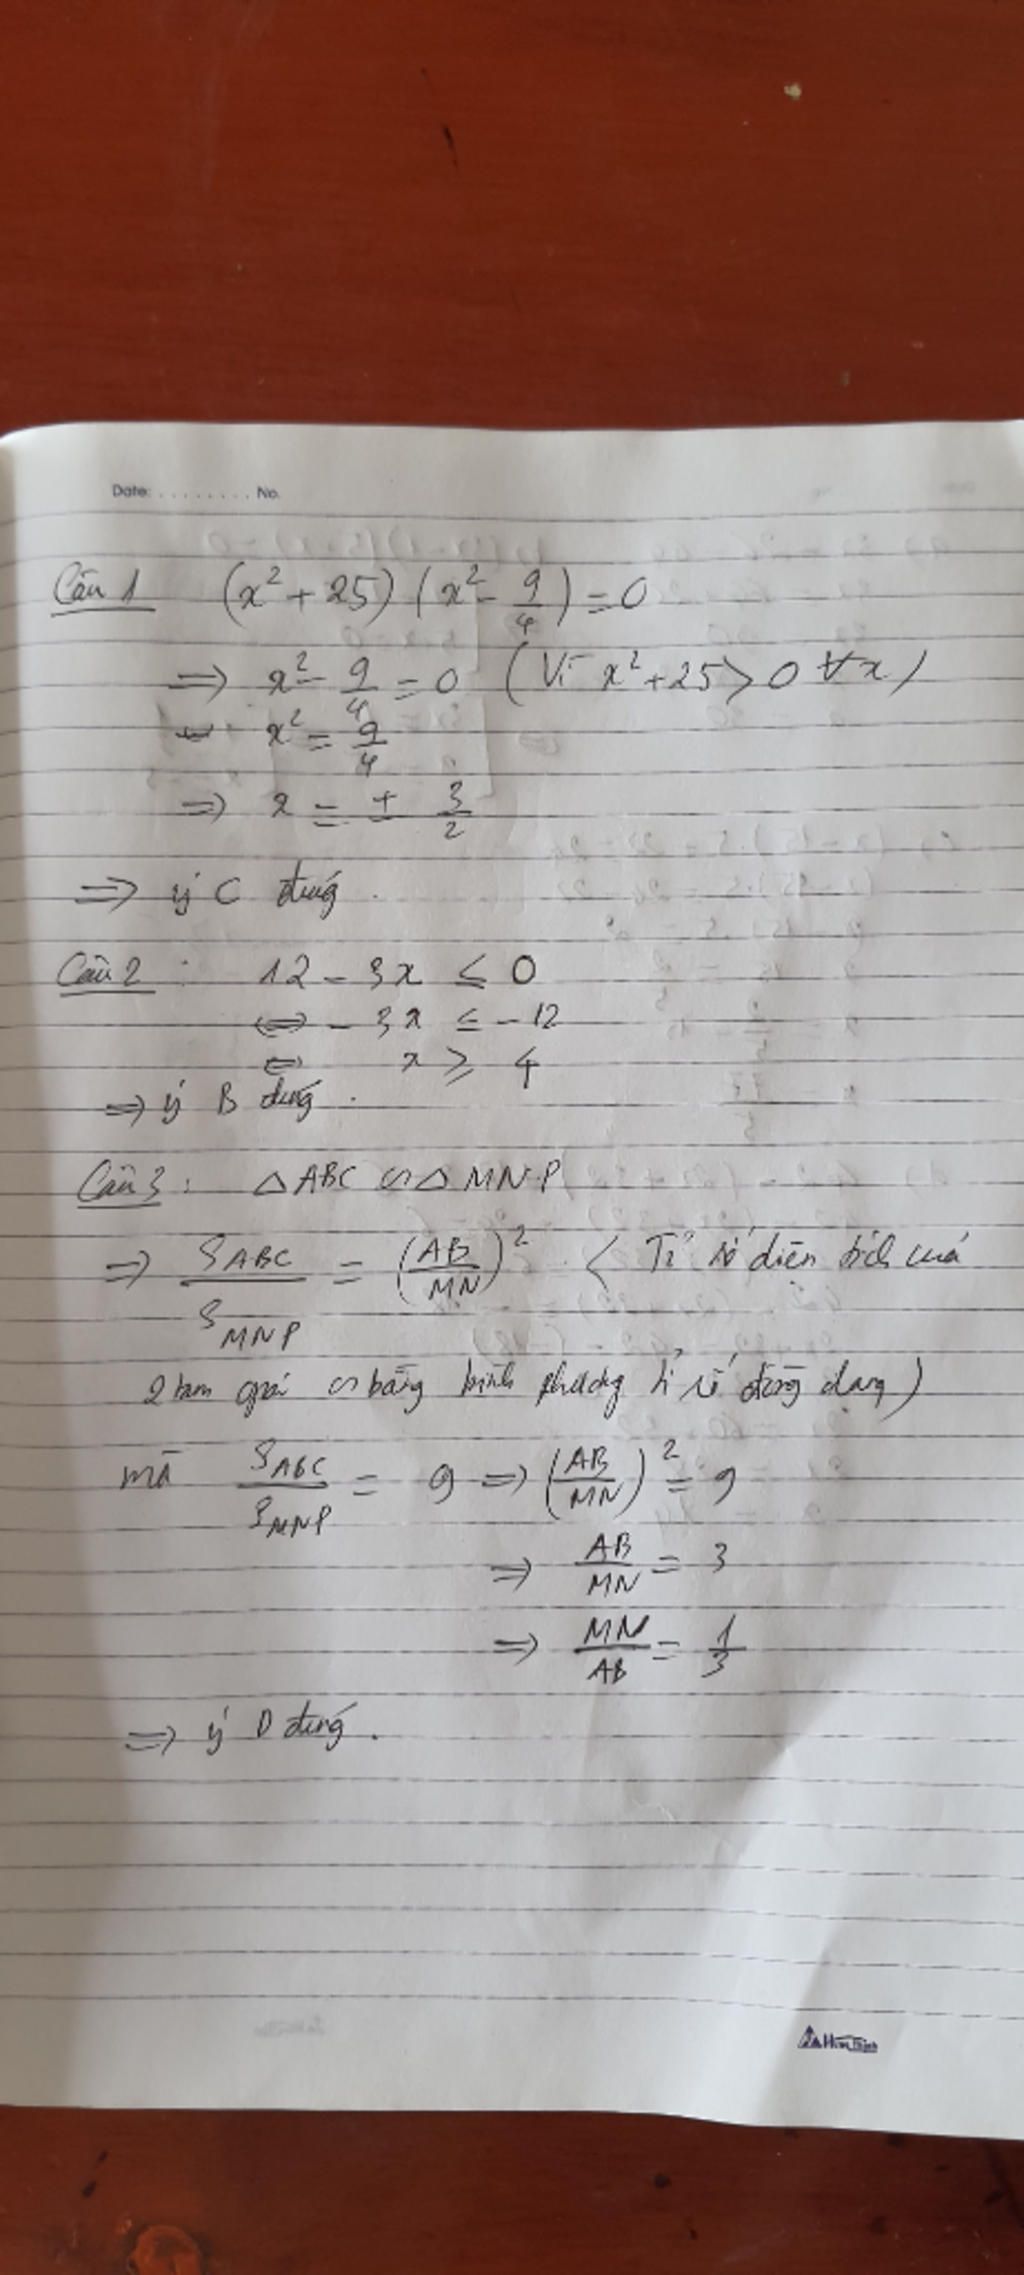 Date: ........ No.
Câu 1 (x² + 25) (x² - 9/4) = 0
=> x² - 9/4 = 0 (Vì x² + 25 > 0 ∀x)
x² = 9/4
=> x = ± 3/2
=> ý C đúng.
Câu 2 : 12 - 3x ≤ 0
<=> - 3x ≤ - 12
<=> x ≥ 4
=> ý B đúng.
Câu 3 : △ABC ∽ △MNP
=> S_ABC / S_MNP = (AB/MN)² . ( Tỉ số diện tích của
2 tam giác ∽ bằng bình phương tỉ số đồng dạng)
mà S_ABC / S_MNP = 9 => (AB/MN)² = 9
=> AB/MN = 3
=> MN/AB = 1/3
=> ý D đúng.